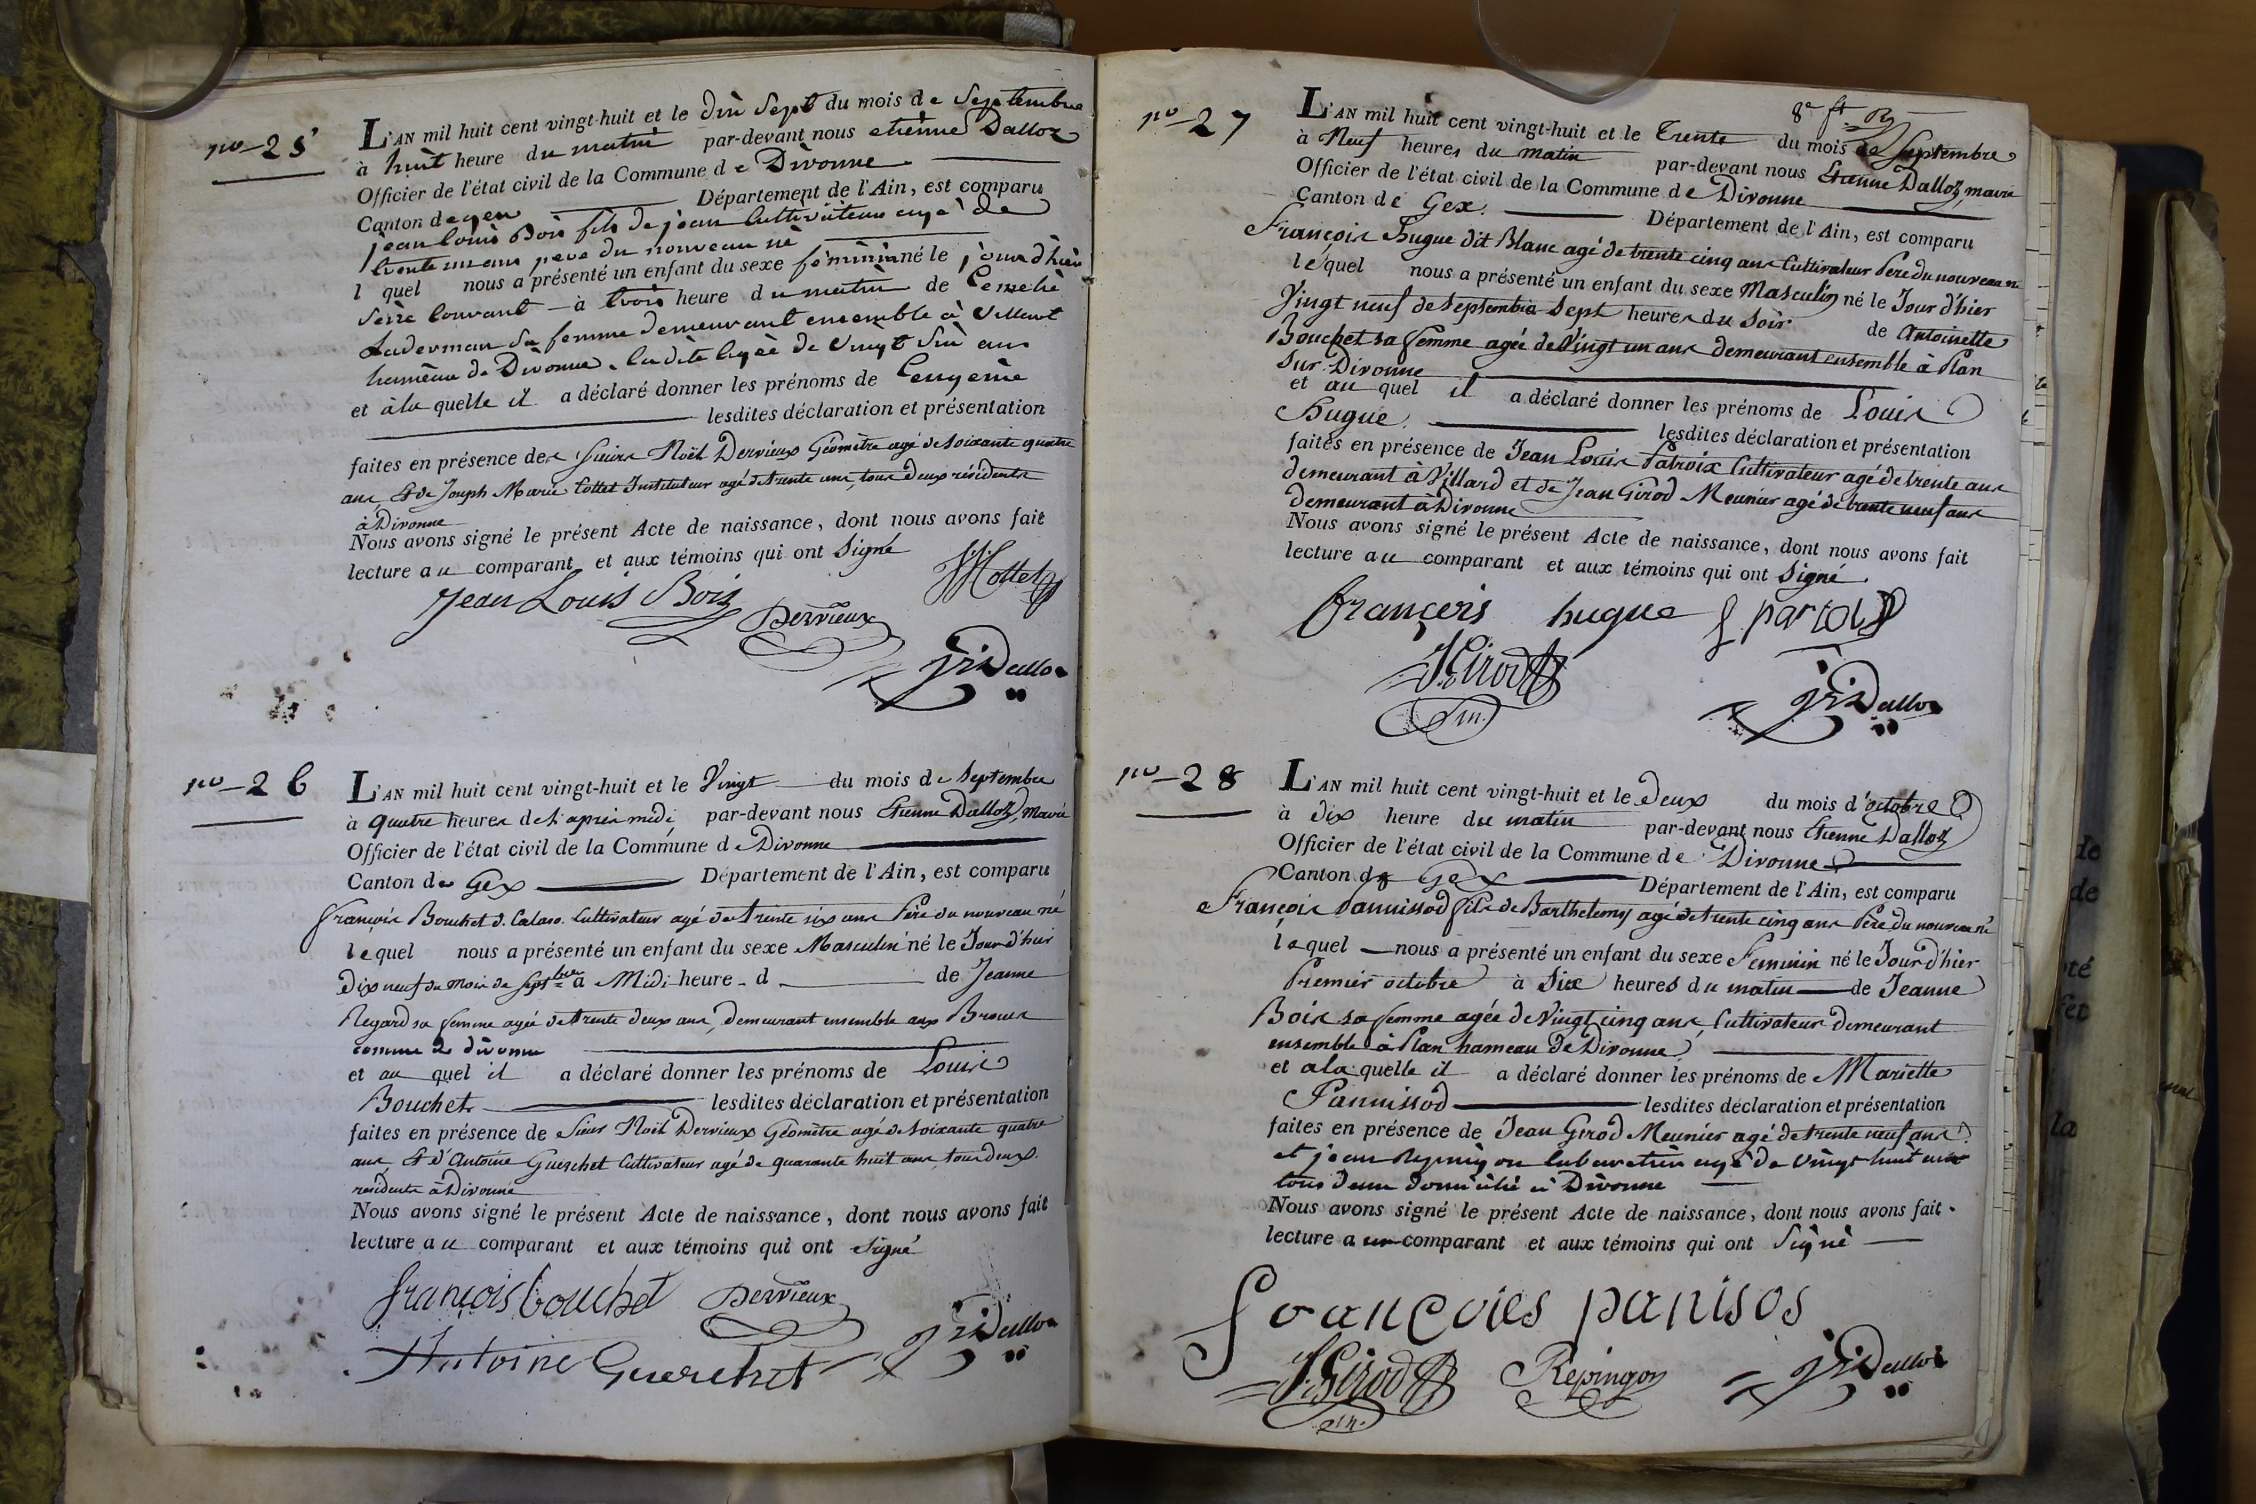 n.o 25
L'AN mil huit cent vingt-huit et le dix Sept du mois de Septembre
à huit heure du matin par-devant nous etienne Dalloz
Officier de l'état civil de la Commune de Divonne
Canton de gex Département de l'Ain, est comparu
jean louis Bois fils de jean Cultivateur agé de
trente un ans pere du nouveau né
l quel nous a présenté un enfant du sexe féminin né le jour d'hier
Seize Courant à trois heure du matin de
Laderman Sa femme demeurant ensemble à Villard
hameau de Divonne. la dite agée de vingt Six ans
et à la quelle il a déclaré donner les prénoms de
lesdites déclaration et présentation
faites en présence des Sieurs Noël Dervieux Géomètre agé de soixante quatre
ans, Et de Joseph Marie Cottet Instituteur agé de trente ans, tous deux résidents
à Divonne
Nous avons signé le présent Acte de naissance, dont nous avons fait
lecture au comparant et aux témoins qui ont Signé
Jean Louis Bois Dervieux JMCottet
Dalloz
n.o 26
L'AN mil huit cent vingt-huit et le Vingt du mois de Septembre
à quatre heures de l'après midi par-devant nous Etienne Dalloz, maire
Officier de l'état civil de la Commune de Divonne
Canton de Gex Département de l'Ain, est comparu
françois Bouchet d. Calaso. Cultivateur agé de trente six ans Père du nouveau né
lequel nous a présenté un enfant du sexe Masculin né le Jour d'hier
Dix neuf du mois de Sept.bre à Midi heure d de Jeanne
Regard sa femme agée de trente deux ans, demeurant ensemble aux
comune de divonne
et au quel il a déclaré donner les prénoms de Louis
Bouchet lesdites déclaration et présentation
faites en présence de Sieur Noël Dervieux Géomètre agé de soixante quatre
ans, Et d'Antoine Guerchet Cultivateur agé de quarante huit ans, tous deux
résidents à Divonne
Nous avons signé le présent Acte de naissance, dont nous avons fait
lecture au comparant et aux témoins qui ont signé
françois bouchet Dervieux
Antoine Guerchet Dalloz
8e ft
n.o 27
L'AN mil huit cent vingt-huit et le Trente du mois de Septembre
à Neuf heures du matin par-devant nous Etienne Dalloz, maire
Officier de l'état civil de la Commune de Divonne
Canton de Gex. Département de l'Ain, est comparu
François Hugue dit Blanc agé de trente cinq ans Cultivateur Père du nouveau né
lequel nous a présenté un enfant du sexe Masculin né le Jour d'hier
Vingt neuf de Septembre Sept heures du Soir de Antoinette
Bouchet sa femme agée de Vingt un ans demeurant ensemble à Plan
Sur Divonne
et au quel il a déclaré donner les prénoms de Louis
Hugue. lesdites déclaration et présentation
faites en présence de Jean Louis Patroix Cultivateur agé de trente ans
demeurant à Villard et de Jean Girod Meunier agé de trente neuf ans
demeurant à Divonne
Nous avons signé le présent Acte de naissance, dont nous avons fait
lecture au comparant et aux témoins qui ont Signé
françois hugue
JGirod
Dalloz
n.o 28
L'AN mil huit cent vingt-huit et le deux du mois d'octobre
à dix heure du matin par-devant nous Etienne Dalloz
Officier de l'état civil de la Commune de Divonne
Canton de Gex Département de l'Ain, est comparu
François Pannissod fils de Barthelemy agé de trente cinq ans Père du nouveau né
lequel nous a présenté un enfant du sexe Feminin né le Jour d'hier
Premier octobre à Six heures du matin de Jeanne
Bois sa femme agée de Vingt cinq ans, Cultivateur demeurant
ensemble à Plan hameau de Divonne
et a la quelle il a déclaré donner les prénoms de Mariette
Pannissod lesdites déclaration et présentation
faites en présence de Jean Girod Meunier agé de trente neuf ans
et jean Repingon agé de vingt huit ans
tous deux domicilié à Divonne
Nous avons signé le présent Acte de naissance, dont nous avons fait
lecture a comparant et aux témoins qui ont Signé
francoies panisos
J.Girod Repingon Dalloz